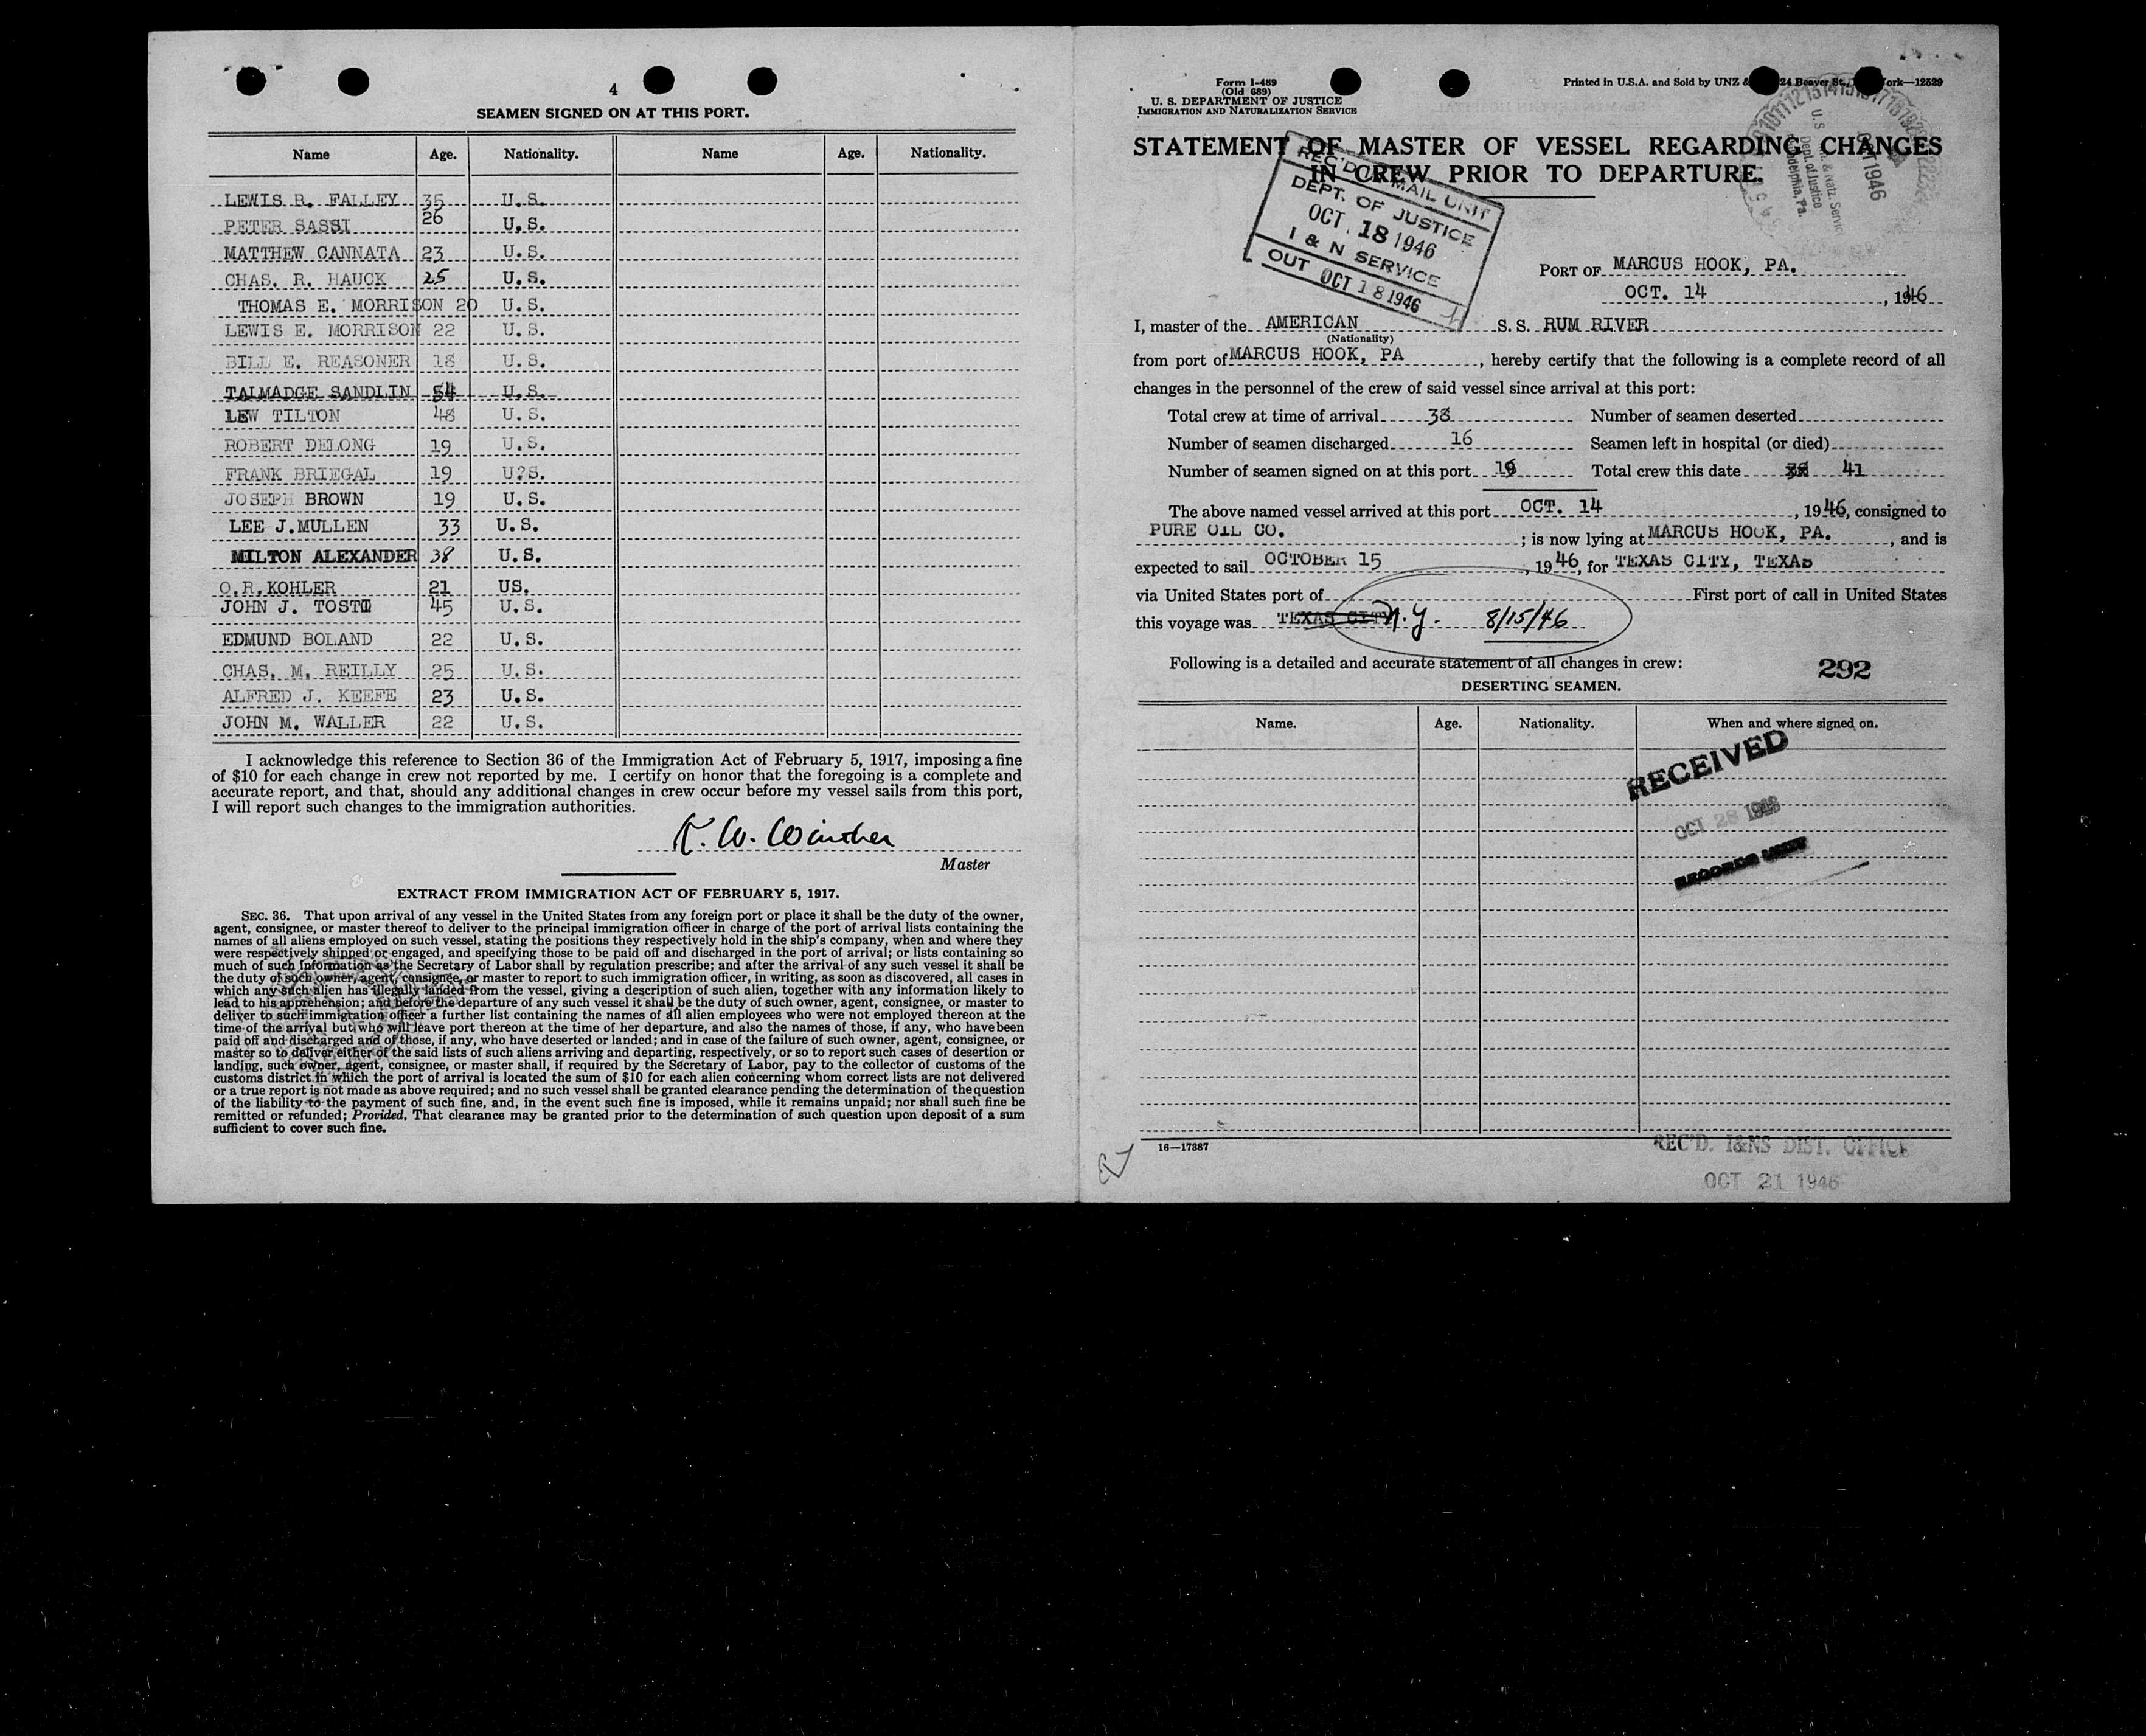 4
SEAMEN SIGNED ON AT THIS PORT.
Name Age. Nationality. Name Age. Nationality.
LEWIS B. FALLEY 35 U.S.
PETER SASSI 26 U.S.
MATTHEW CANNATA 23 U.S.
CHAS. R. HAUCK 25 U.S.
THOMAS E. MORRISON 20 U.S.
LEWIS E. MORRISON 22 U.S.
BILL E. REASONER 18 U.S.
TALMADGE SANDLIN 54 U.S.
LEW TILTON 48 U.S.
ROBERT DELONG 19 U.S.
FRANK BRIEGAL 19 U?S.
JOSEPH BROWN 19 U.S.
LEE J.MULLEN 33 U.S.
MILTON ALEXANDER 38 U.S.
O.R.KOHLER 21 US.
JOHN J. TOSTI 45 U.S.
EDMUND BOLAND 22 U.S.
CHAS. M. REILLY 25 U.S.
ALFRED J. KEEFE 23 U.S.
JOHN M. WALLER 22 U.S.
I acknowledge this reference to Section 36 of the Immigration Act of February 5, 1917, imposing a fine
of $10 for each change in crew not reported by me. I certify on honor that the foregoing is a complete and
accurate report, and that, should any additional changes in crew occur before my vessel sails from this port,
I will report such changes to the immigration authorities.
K. W. Winther
Master
EXTRACT FROM IMMIGRATION ACT OF FEBRUARY 5, 1917.
SEC. 36. That upon arrival of any vessel in the United States from any foreign port or place it shall be the duty of the owner,
agent, consignee, or master thereof to deliver to the principal immigration officer in charge of the port of arrival lists containing the
names of all aliens employed on such vessel, stating the positions they respectively hold in the ship's company, when and where they
were respectively shipped or engaged, and specifying those to be paid off and discharged in the port of arrival; or lists containing so
much of such information as the Secretary of Labor shall by regulation prescribe; and after the arrival of any such vessel it shall be
the duty of such owner, agent, consignee, or master to report to such immigration officer, in writing, as soon as discovered, all cases in
which any such alien has illegally landed from the vessel, giving a description of such alien, together with any information likely to
lead to his apprehension; and before the departure of any such vessel it shall be the duty of such owner, agent, consignee, or master to
deliver to such immigration officer a further list containing the names of all alien employees who were not employed thereon at the
time of the arrival but who will leave port thereon at the time of her departure, and also the names of those, if any, who have been
paid off and discharged and of those, if any, who have deserted or landed; and in case of the failure of such owner, agent, consignee, or
master so to deliver either of the said lists of such aliens arriving and departing, respectively, or so to report such cases of desertion or
landing, such owner, agent, consignee, or master shall, if required by the Secretary of Labor, pay to the collector of customs of the
customs district in which the port of arrival is located the sum of $10 for each alien concerning whom correct lists are not delivered
or a true report is not made as above required; and no such vessel shall be granted clearance pending the determination of the question
of the liability to the payment of such fine, and, in the event such fine is imposed, while it remains unpaid; nor shall such fine be
remitted or refunded; Provided, That clearance may be granted prior to the determination of such question upon deposit of a sum
sufficient to cover such fine.
Form I-489
(Old 689)
U. S. DEPARTMENT OF JUSTICE
IMMIGRATION AND NATURALIZATION SERVICE
Printed in U.S.A. and Sold by UNZ & 24 Beaver St., ork—12529
STATEMENT OF MASTER OF VESSEL REGARDING CHANGES
IN CREW PRIOR TO DEPARTURE.
REC'D MAIL UNIT
DEPT. OF JUSTICE
OCT 18 1946
I & N SERVICE
OUT OCT 18 1946
PORT OF MARCUS HOOK, PA.
OCT. 14, 1946
I, master of the AMERICAN S. S. RUM RIVER
(Nationality)
from port of MARCUS HOOK, PA, hereby certify that the following is a complete record of all
changes in the personnel of the crew of said vessel since arrival at this port:
Total crew at time of arrival 38 Number of seamen deserted
Number of seamen discharged 16 Seamen left in hospital (or died)
Number of seamen signed on at this port 19 Total crew this date 41
The above named vessel arrived at this port OCT. 14, 1946, consigned to
PURE OIL CO.; is now lying at MARCUS HOOK, PA., and is
expected to sail OCTOBER 15, 1946, for TEXAS CITY, TEXAS
via United States port of First port of call in United States
this voyage was TEXAS CITY N.Y. 8/15/46
Following is a detailed and accurate statement of all changes in crew:
292
DESERTING SEAMEN.
Name. Age. Nationality. When and where signed on.
RECEIVED
OCT 28 1946
RECORDS UNIT
16—17387
REC'D. I&NS DIST. OFFICE
OCT 21 1946